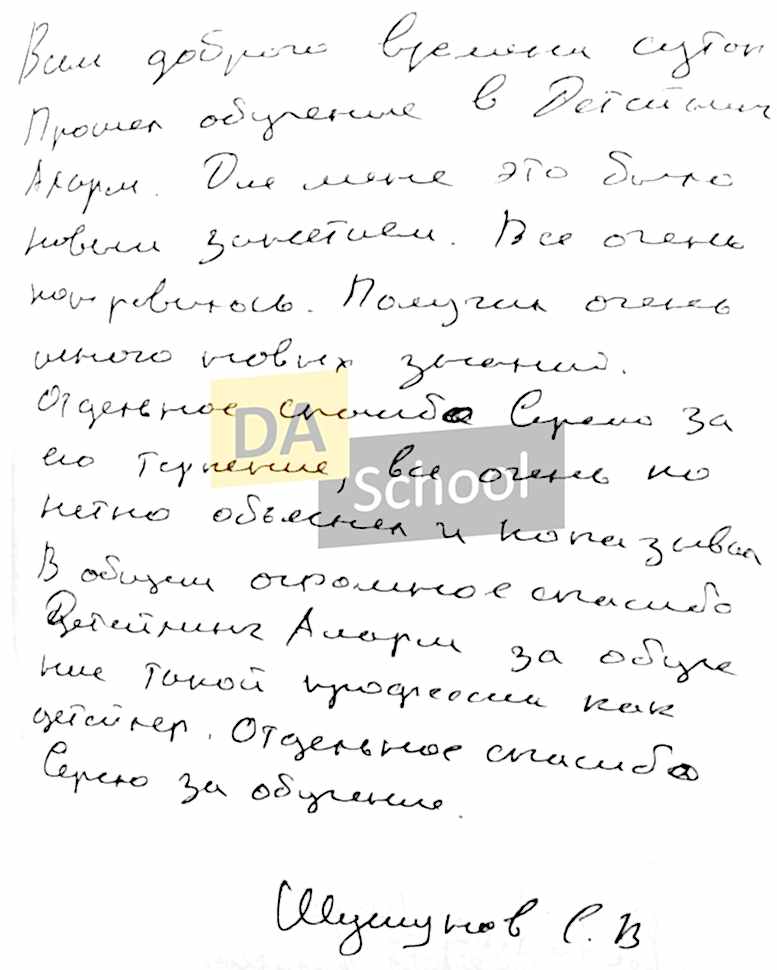 Всем доброго времени суток
Прошел обучение в Детейлинг
Аларм. Для меня это было
новым занятием. Все очень
понравилось. Получил очень
много новых знаний.
Отдельное спасибо Серёже за
его терпение, все очень по
нятно объяснял и показывал
В общем огромное спасибо
Детейлинг Аларм за обуче
ние такой профессии как
детейлер. Отдельное спасибо
за обучение.
DA
School
С. В